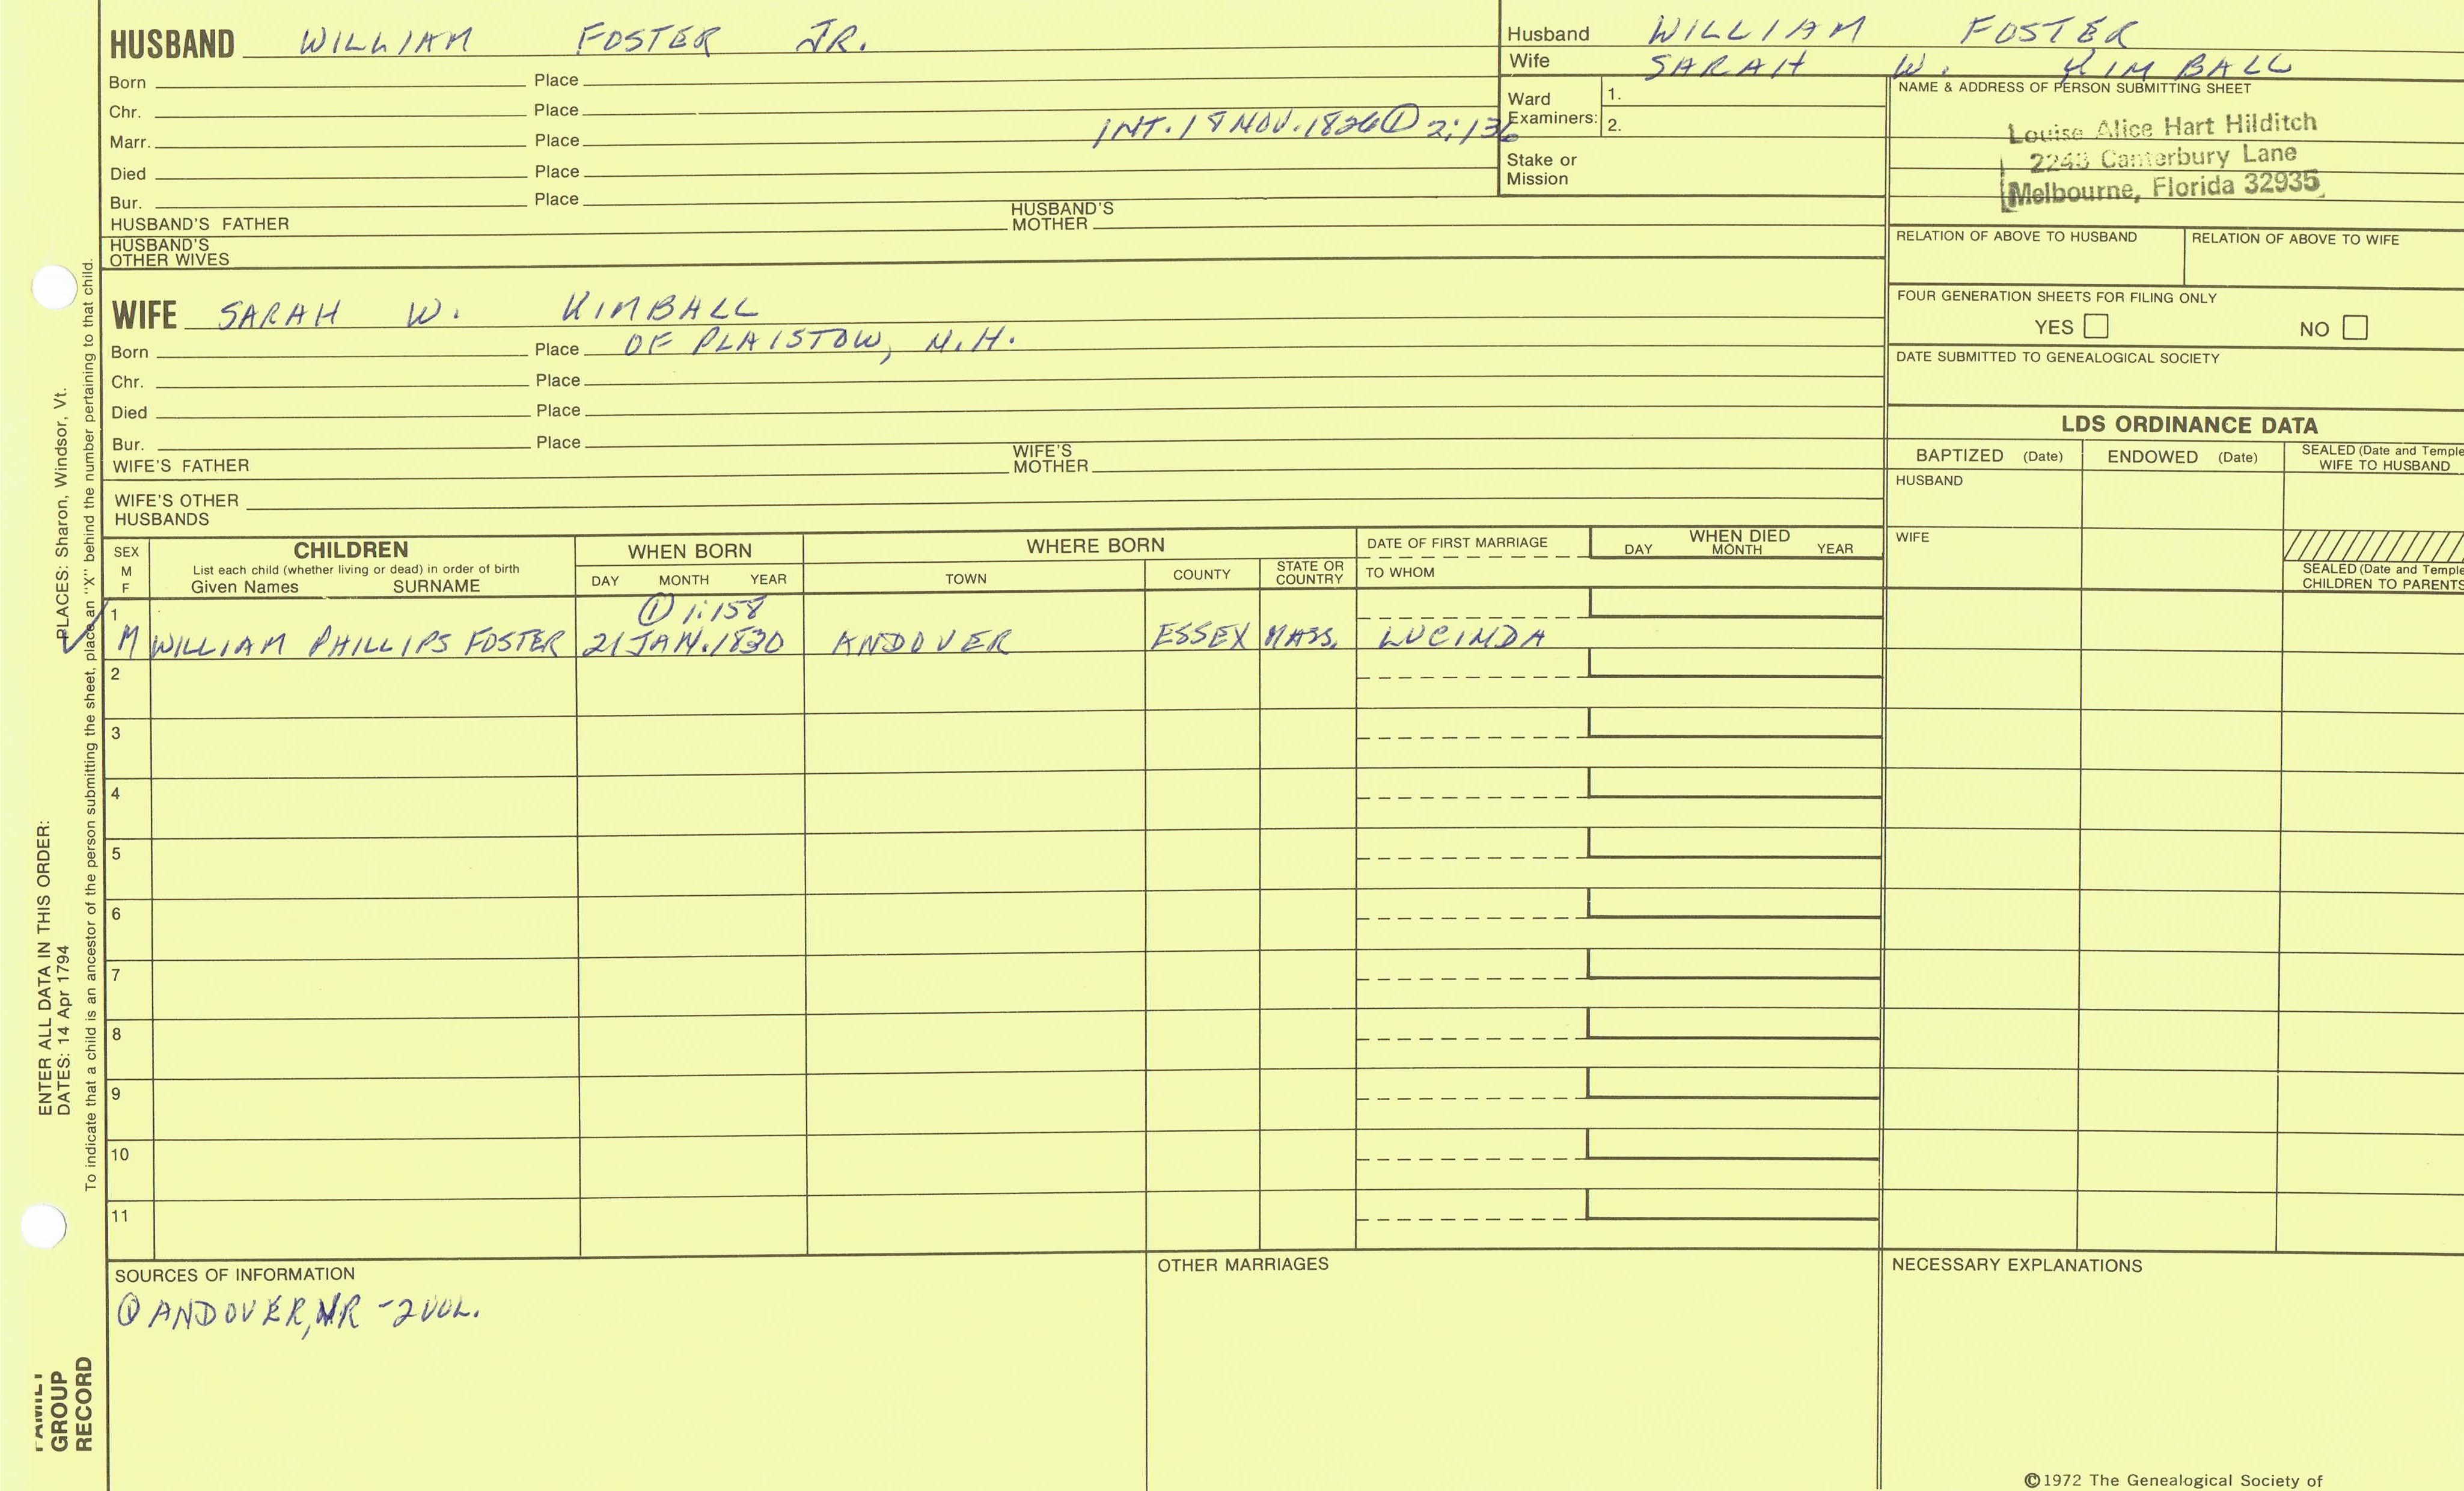 HUSBAND WILLIAM FOSTER JR.
Born Place
Chr. Place
Marr. Place INT. 18 NOV. 1826 ① 2:136
Died Place
Bur. Place
HUSBAND'S FATHER HUSBAND'S MOTHER
HUSBAND'S OTHER WIVES
Husband WILLIAM FOSTER
Wife SARAH W. KIMBALL
Ward Examiners: 1.
2.
Stake or Mission
NAME & ADDRESS OF PERSON SUBMITTING SHEET
Louise Alice Hart Hilditch
2243 Canterbury Lane
Melbourne, Florida 32935
RELATION OF ABOVE TO HUSBAND RELATION OF ABOVE TO WIFE
FOUR GENERATION SHEETS FOR FILING ONLY
YES NO
DATE SUBMITTED TO GENEALOGICAL SOCIETY
WIFE SARAH W. KIMBALL
Born Place OF PLAISTOW, N.H.
Chr. Place
Died Place
Bur. Place
WIFE'S FATHER WIFE'S MOTHER
WIFE'S OTHER HUSBANDS
LDS ORDINANCE DATA
BAPTIZED (Date) ENDOWED (Date) SEALED (Date and Temple
WIFE TO HUSBAND
HUSBAND
WIFE
SEALED (Date and Temple
CHILDREN TO PARENTS
SEX M F
CHILDREN
List each child (whether living or dead) in order of birth
Given Names SURNAME
WHEN BORN
DAY MONTH YEAR
WHERE BORN
TOWN COUNTY STATE OR COUNTRY
DATE OF FIRST MARRIAGE
TO WHOM
WHEN DIED
DAY MONTH YEAR
1 ① 1:158
M WILLIAM PHILLIPS FOSTER 21 JAN. 1830 ANDOVER ESSEX MASS. LUCINDA
2
3
4
5
6
7
8
9
10
11
SOURCES OF INFORMATION
① ANDOVER, VR - 2 VOL.
OTHER MARRIAGES
NECESSARY EXPLANATIONS
©1972 The Genealogical Society of
ENTER ALL DATA IN THIS ORDER:
DATES: 14 Apr 1794
PLACES: Sharon, Windsor, Vt.
To indicate that a child is an ancestor of the person submitting the sheet, place an "X" behind the number pertaining to that child.
FAMILY
GROUP
RECORD